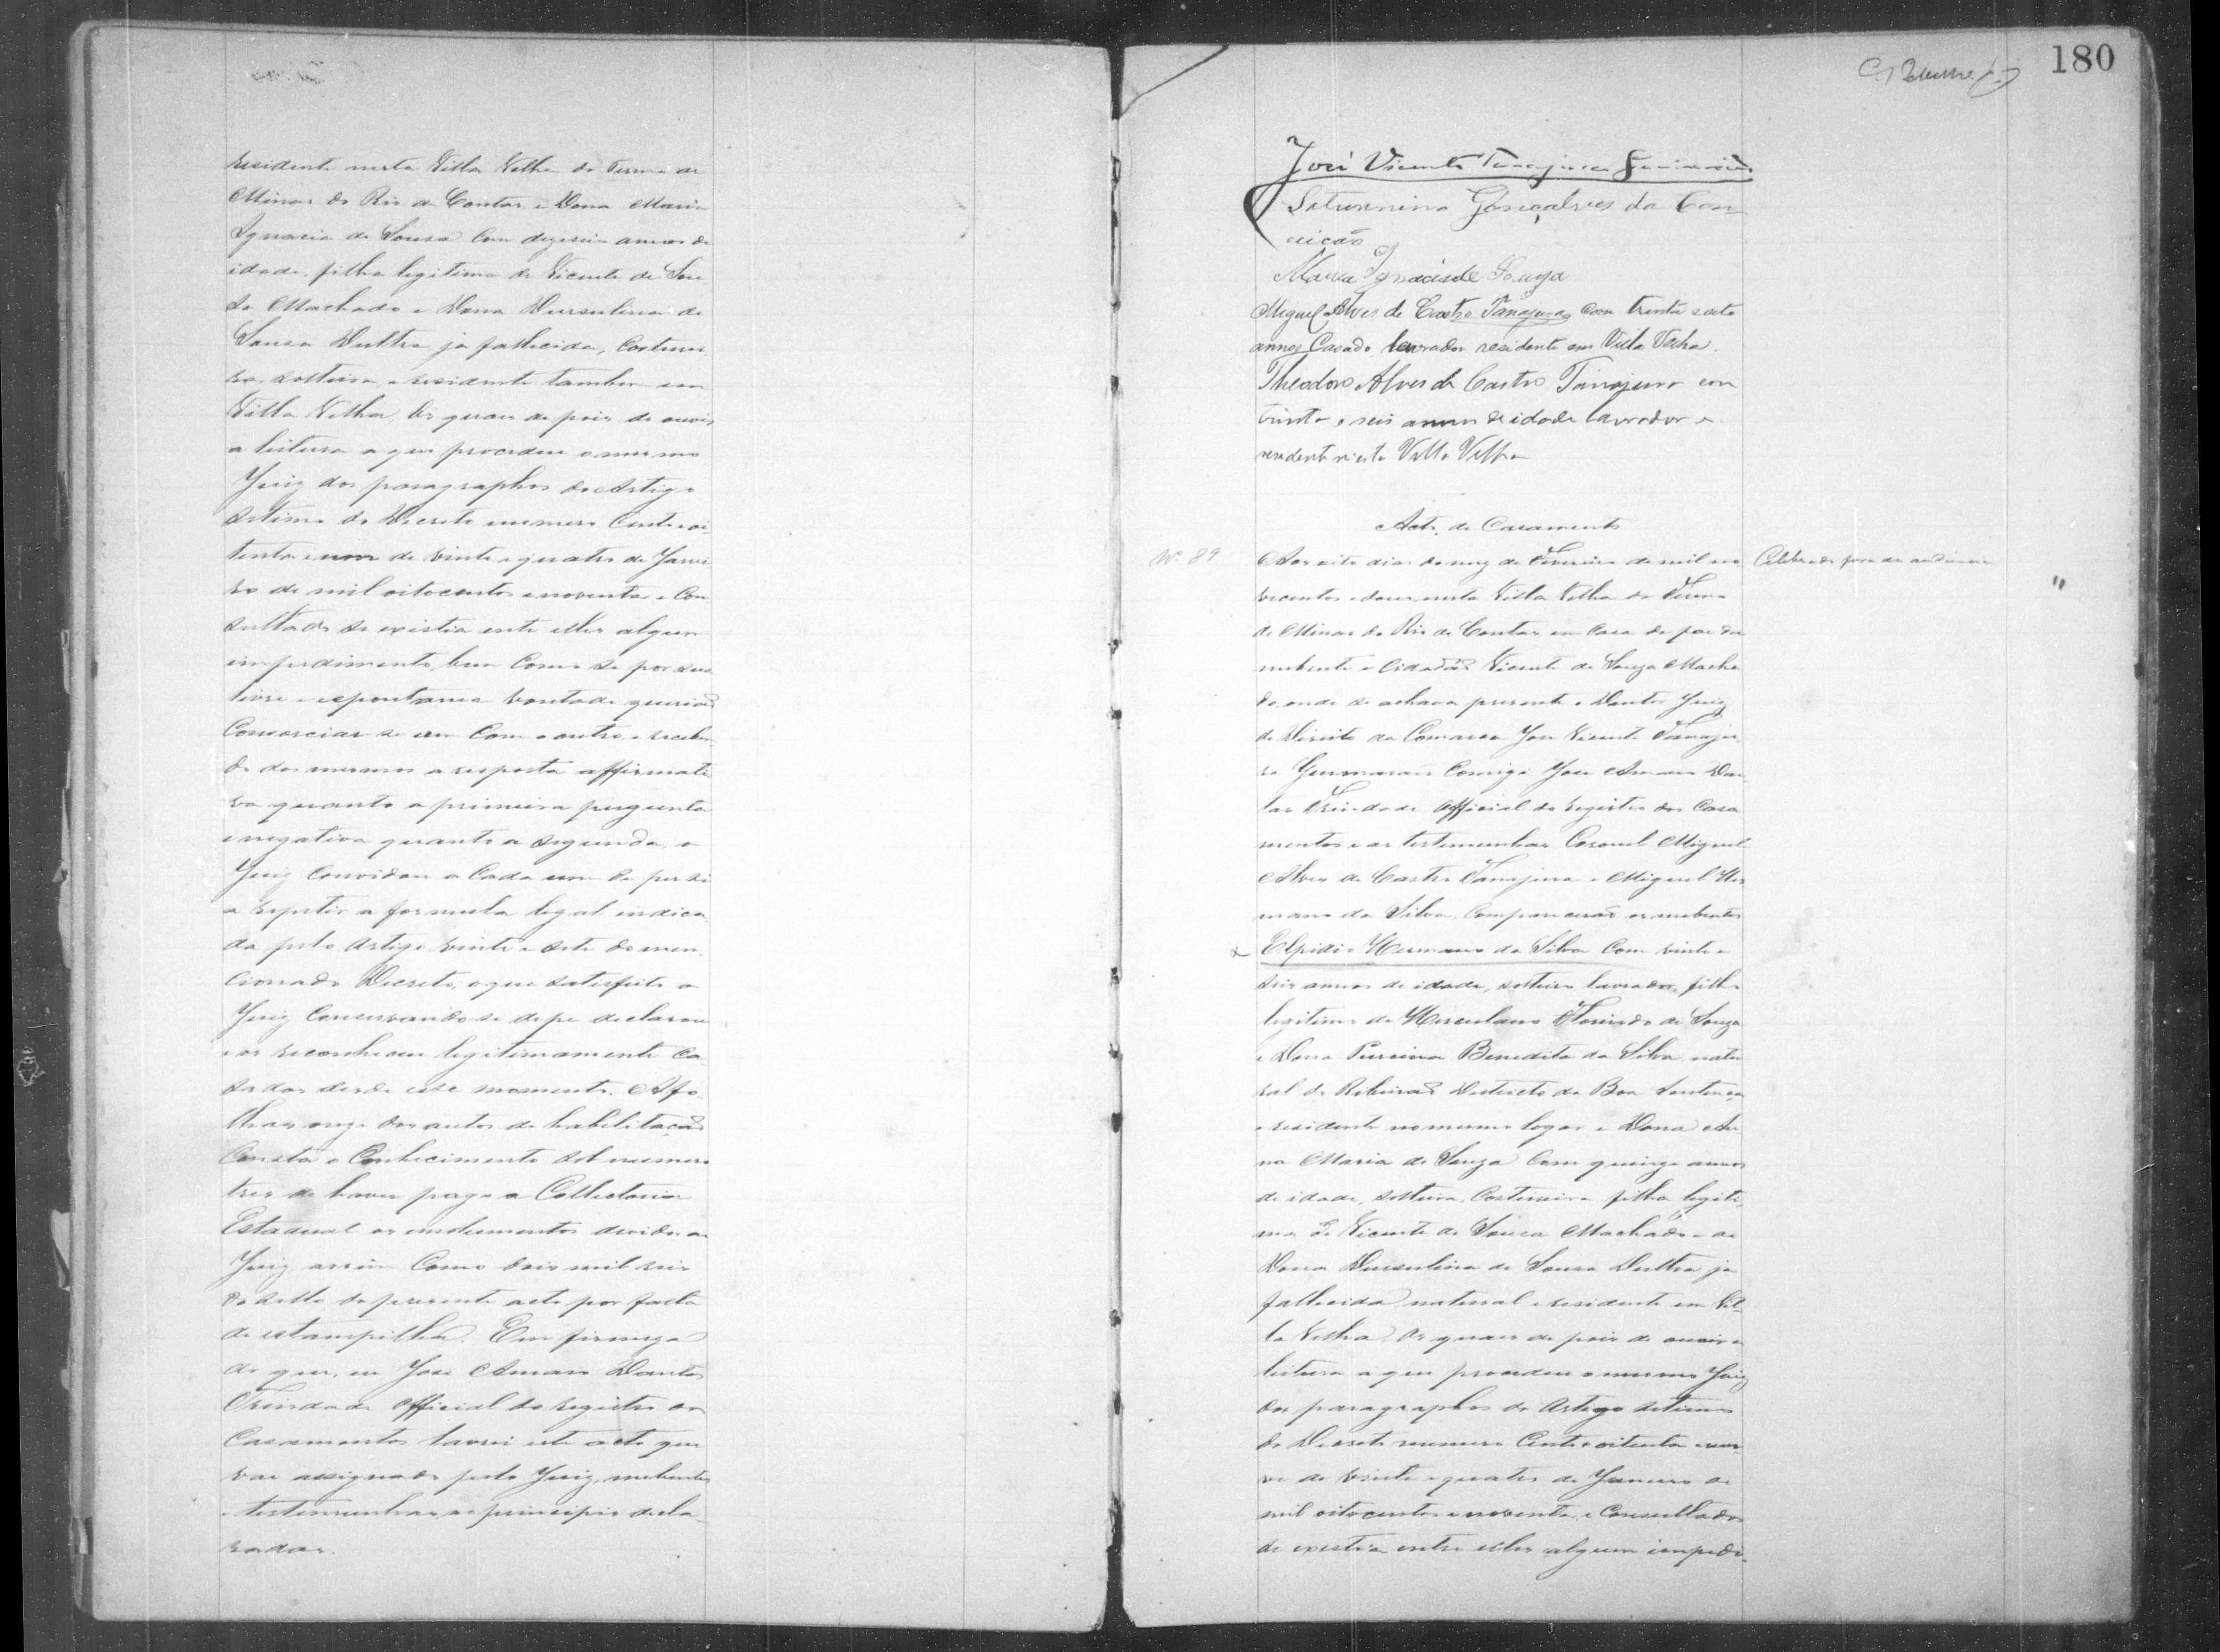 residente nesta Villa Velha do Termo de
Minas do Rio de Contas, e Dona Maria
Ignacia de Sousa com dezeseis annos de
idade, filha legitima de Vicente de Sou
sa Machado e Dona Dursulina de
Sousa Duttra, ja fallecida, Costurei
ra, solteira, e residente tambem em
Villa Velha, Os quaes depois de ouvir
a leitura a que procedeu o mesmo
Juiz dos paragraphos do Artigo
Setimo do Decreto numero Cento oi
tenta e um de vinte e quatro de Janei
ro de mil oitocentos e noventa e Con
sultado se existia entre elles algum
impedimento, bem Como se por sua
livre e espontanea vontade queriaõ
Consorciar-se um Com o outro e receben
do dos mesmos a resposta affirmati
va quanto a primeira pergunta
e negativa quanto a segunda, o
Juiz Convidou a Cada um de per si
a repetir a formula legal indica
da pelo Artigo vinte e sete do men
cionado Decreto, o que satisfeito o
Juiz Conservando-se de pe declarou
e os reconheceu legitimamente Ca-
sados desde esse momento. A fo
lhas onze dos autos de habilitaçaõ
Consta o Conhecimento sob numero
tres de haver pago a Collectoria
Estadual os emolumentos devidos ao
Juiz assim Como dois mil reis
do sello do presente acto por falta
de estampilha. Em firmeza
do que, eu Jose Amaro Dantas
Trindade Official do registro dos
Casamentos lavrei este acto que
vae assignado pelo Juiz, nubentes
e testemunhas ao principio decla-
radas.
180
José Vicente Tanajura Guimarães
Saturnino Gonçalves da Con
ceicão
Maria Ignacia de Souza
Miguel Alves de Castro Tanajura, com trinta e sete
annos Casado, lavrador residente em Villa Velha.
Theodoro Alves de Castro Tanajura com
trinta e seis annos de idade lavrador e
residente nesta Villa Velha
Acto de Casamento
Nº 89
Aos oito dias do mez de Fevereiro de mil no
Celebrado fora da audiencia
vecentos e doze nesta Villa Velha do Termo
de Minas do Rio de Contas em Casa do pae da
nubente o Cidadaõ Vicente de Souza Macha
do, onde se achava presente o Doutor Juiz
de Direito da Comarca Jose Vicente Tanaju
ra Guimaraes Comigo Jose Amaro Dan
tas Trindade Official do registro dos Casa
mentos e as testemunhas Coronel Miguel
Alves de Castro Tanajura e Miguel Her
mano da Silva, Compareceraõ os nubentes
Elpidio Hermano da Silva Com vinte e
seis annos de idade, solteiro lavrador, filho
legitimo de Herculano Florindo de Souza
e Dona Benedita da Silva, natu
ral do Ribeiraõ Districto da Boa Sentença
e residente no mesmo logar e Dona An
na Maria de Souza Com quinze annos
de idade, solteira, Costureira filha legiti
ma de Vicente de Sousa Machado e de
Dona Dursulina de Sousa Duttra ja
fallecida natural e residente em Vil-
la Velha. Os quaes depois de ouvir a
leitura a que procedeu o mesmo Juiz
dos paragraphos do Artigo setimo
do Decreto numero Cento e oitenta e um
de vinte e quatro de Janeiro de
mil oitocentos e noventa, e Consultados
se existia entre elles algum impedi-